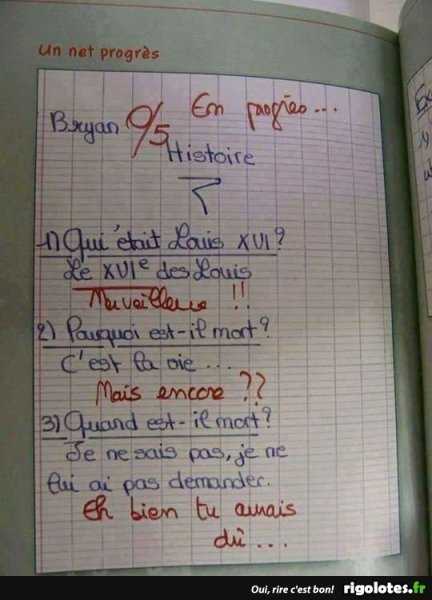 Un net progrès
En progrès...
Bryan 0/5
Histoire
1) Qui était Louis XVI ?
Le XVIe des Louis
Merveilleux !!
2) Pourquoi est-il mort ?
C'est la vie ...
Mais encore ??
3) Quand est-il mort ?
Je ne sais pas, je ne
lui ai pas demander.
Eh bien tu aurais
dû ...
Oui, rire c'est bon! rigolotes.fr